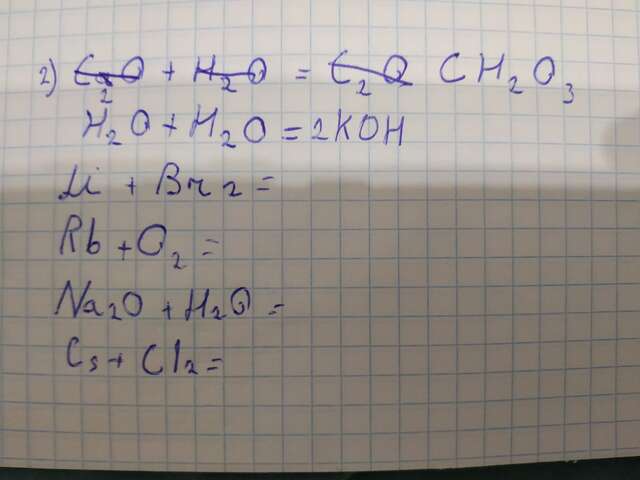 2) C₂O + H₂O = C₂O CH₂O₃
H₂O + H₂O = 2KOH
Li + Br₂ =
Rb + O₂ =
Na₂O + H₂O =
Cs + Cl₂ =